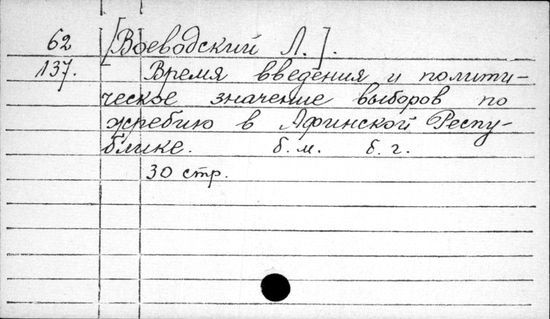 62 [Воеводский Л.].
137. Время введения и полити-
ческое значение выборов по
жребию в Афинской Респу-
блике. б.м. б.г.
30 стр.